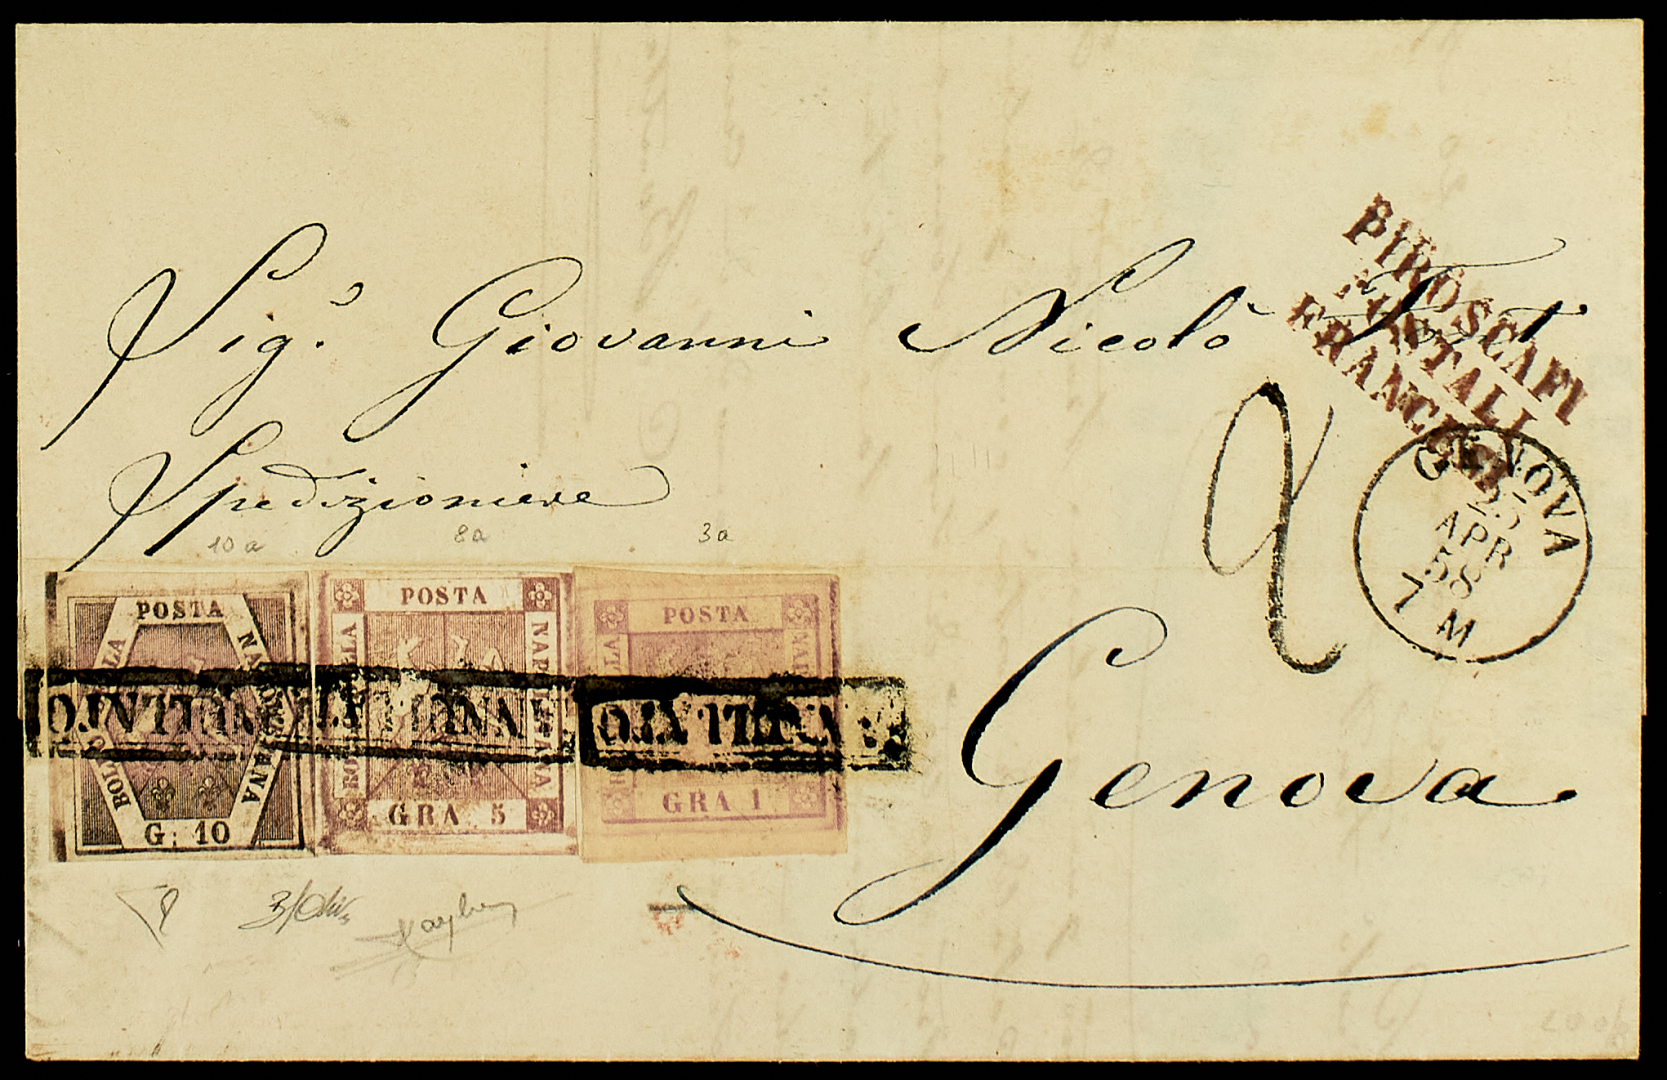 PIROSCAFI
POSTALI
FRANCESI
Sig.r Giovanni Nicolò
Spedizioniere
10a 8a 3a
GENOVA
25
APR
58
7 M
2
POSTA NAPOLETANA BOLLO DELLA G. 10
POSTA NAPOLETANA BOLLO DELLA GRA 5
POSTA NAPOLETANA BOLLO DELLA GRA 1
ANNULLATO
ANNULLATO
ANNULLATO
Genova